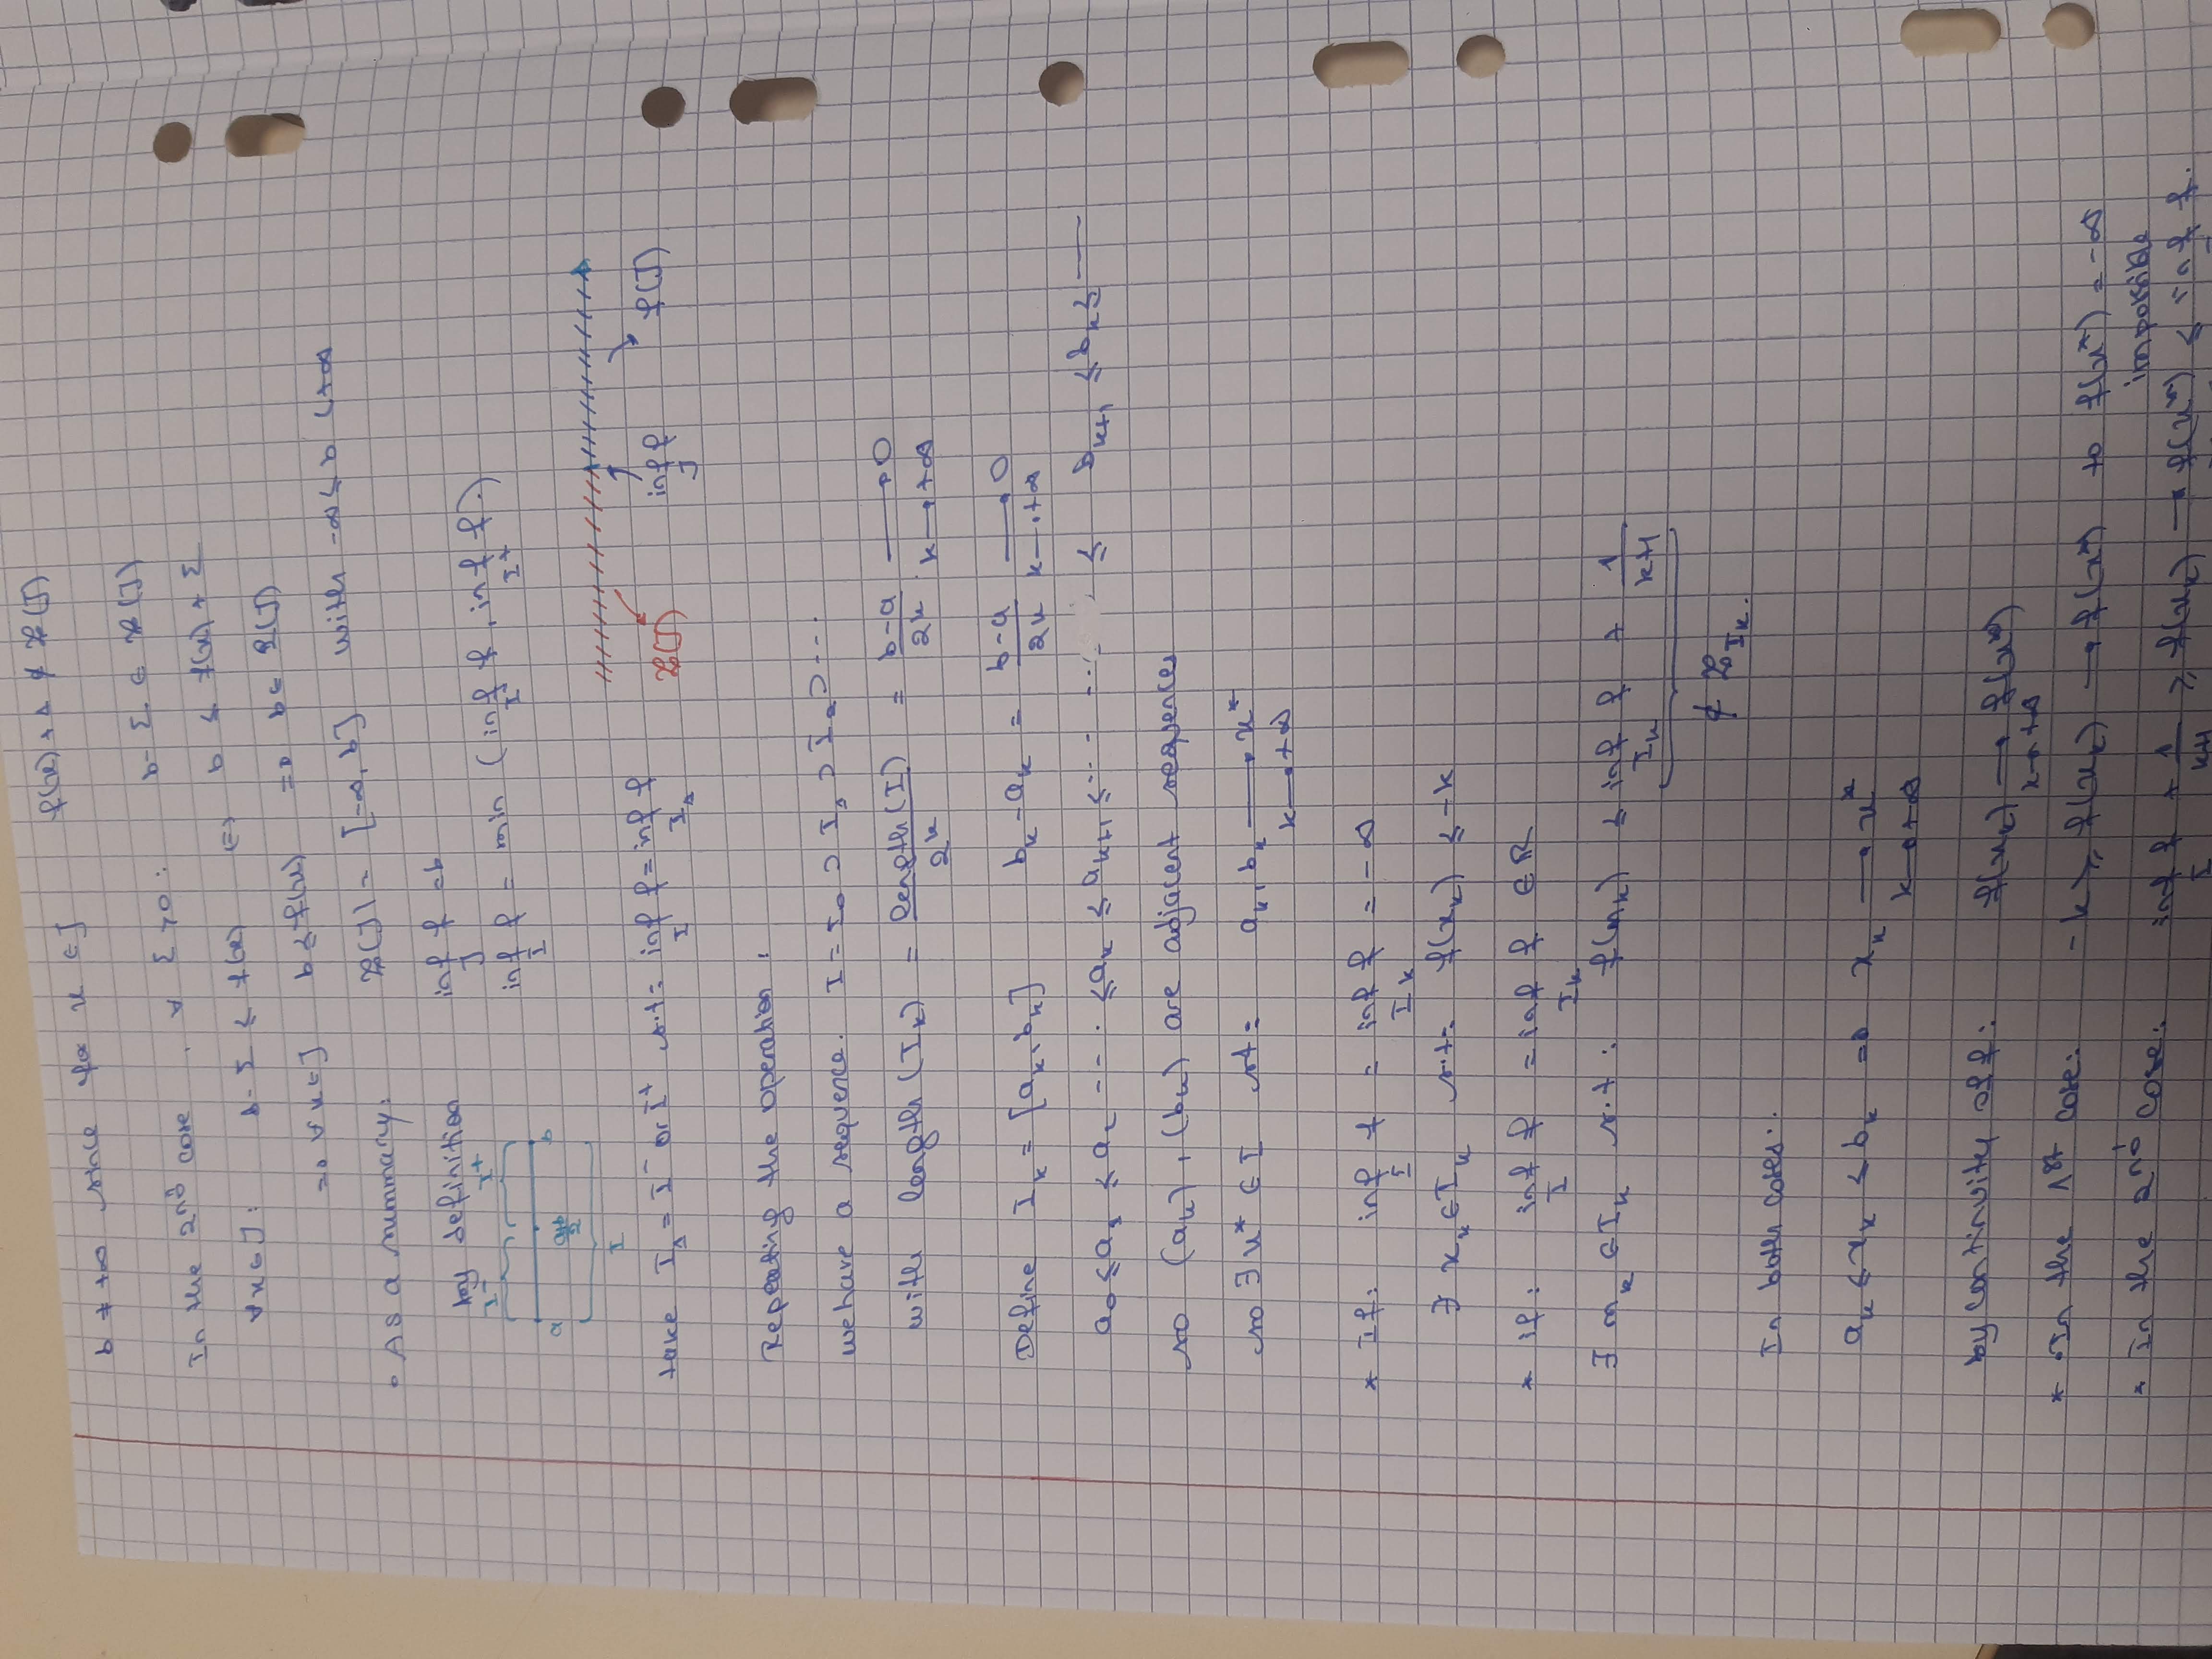 b ≠ +∞ since for x ∈ J f(x) + 1 ∉ L(J)
In the 2nd case, ∀ Σ > 0 : b - Σ ∈ L(J)
∀x ∈ J : b - Σ ≤ f(x) ⇔ b ≤ f(x) + Σ
⇒ ∀x ∈ J b ≤ f(x) ⇒ b ∈ L(J)
• As a summary: L(J) = [-∞, b] with -∞ ≤ b < +∞
by definition inf_J f = b
I⁻ I⁺
inf_I f = min (inf_I⁻ f, inf_I⁺ f.)
a (a+b)/2 b
I
take I₁ = I⁻ or I⁺ s.t: inf_I f = inf_I₁ f
L(J) inf_J f f(J)
Repeating the operation :
we have a sequence. I = I₀ ⊃ I₁ ⊃ I₂ ⊃ ...
with length(I_k) = length(I)/2^k = (b-a)/2^k → 0 k→+∞
Define I_k = [a_k, b_k] b_k - a_k = (b-a)/2^k → 0 k→+∞
a₀ ≤ a₁ ≤ a₂ ... ≤ a_k ≤ a_{k+1} ≤ ... ... ≤ b_{k+1} ≤ b_k ≤ ...
so (a_k), (b_k) are adjacent sequences
so ∃ x* ∈ I st: a_k, b_k → x* k→+∞
* If: inf_I f = inf_{I_k} f = -∞
∃ x_k ∈ I_k s.t: f(x_k) ≤ -k
* if: inf_I f = inf_{I_k} f ∈ ℝ
∃ x_k ∈ I_k s.t : f(x_k) ≤ inf_{I_k} f + 1/(k+1)
∉ L_{I_k}.
In both cases..
a_k ≤ x_k ≤ b_k ⇒ x_k → x* k→+∞
by continuity of f: f(x_k) → f(x*) x→+∞
* In the 1st case: -k ≥ f(x_k) → f(x*) to f(x*) = -∞
impossible
* In the 2nd case: inf_I f + 1/(k+1) ≥ f(x_k) → f(x*) ≤ inf f.